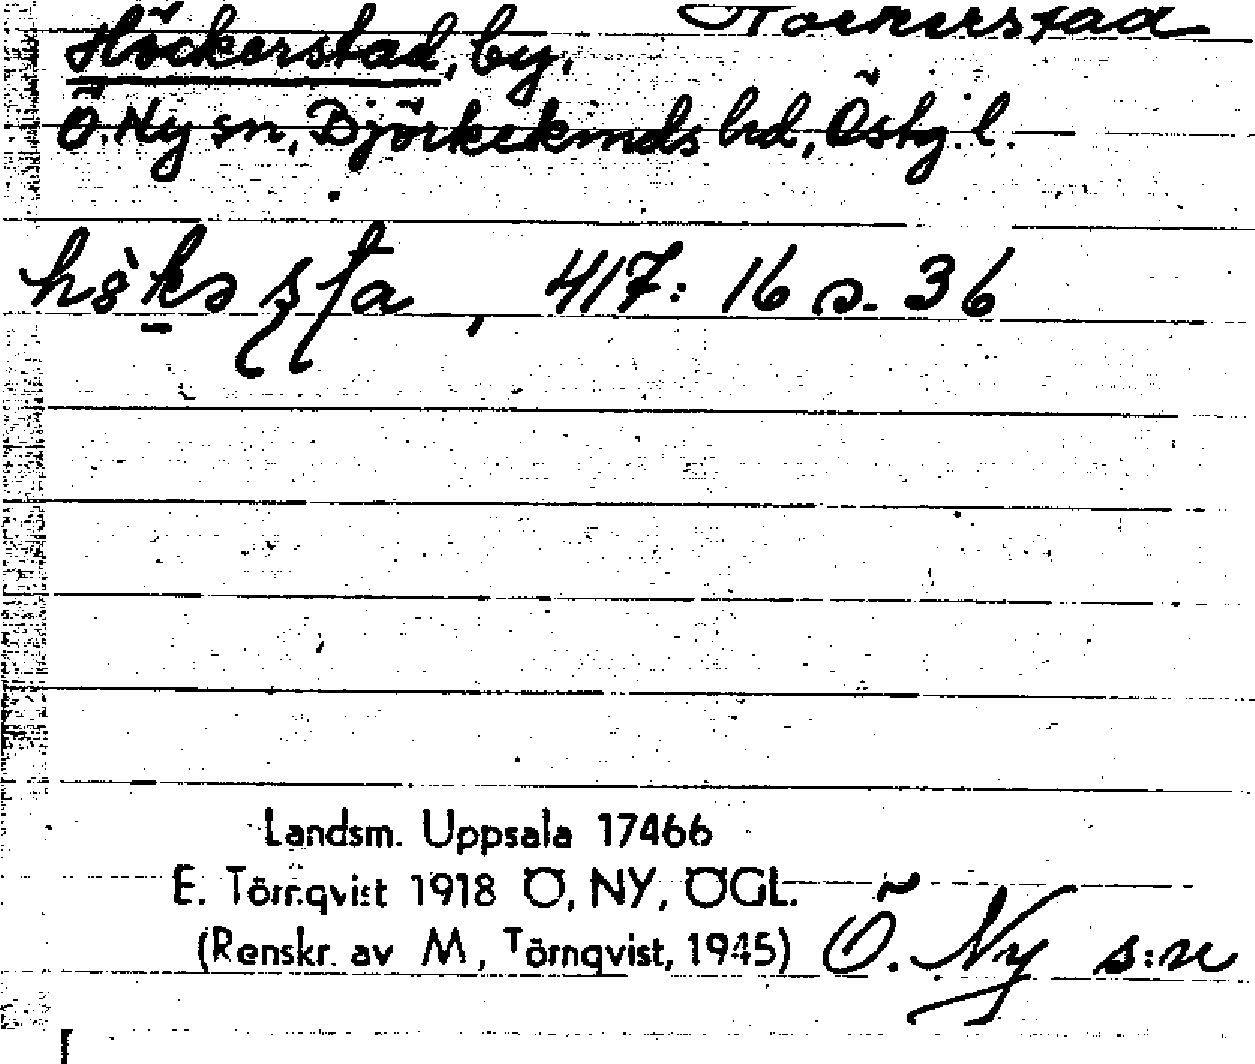 Höckerstad
Höckerstad, by.
Ö. Ny sn, Björkekinds hd, Östg. l.
417: 16 s. 36
Landsm. Uppsala 17466
E. Törnqvist 1918 Ö, NY, ÖGL.
(Renskr. av M, Törnqvist, 1945) Ö. Ny s:n